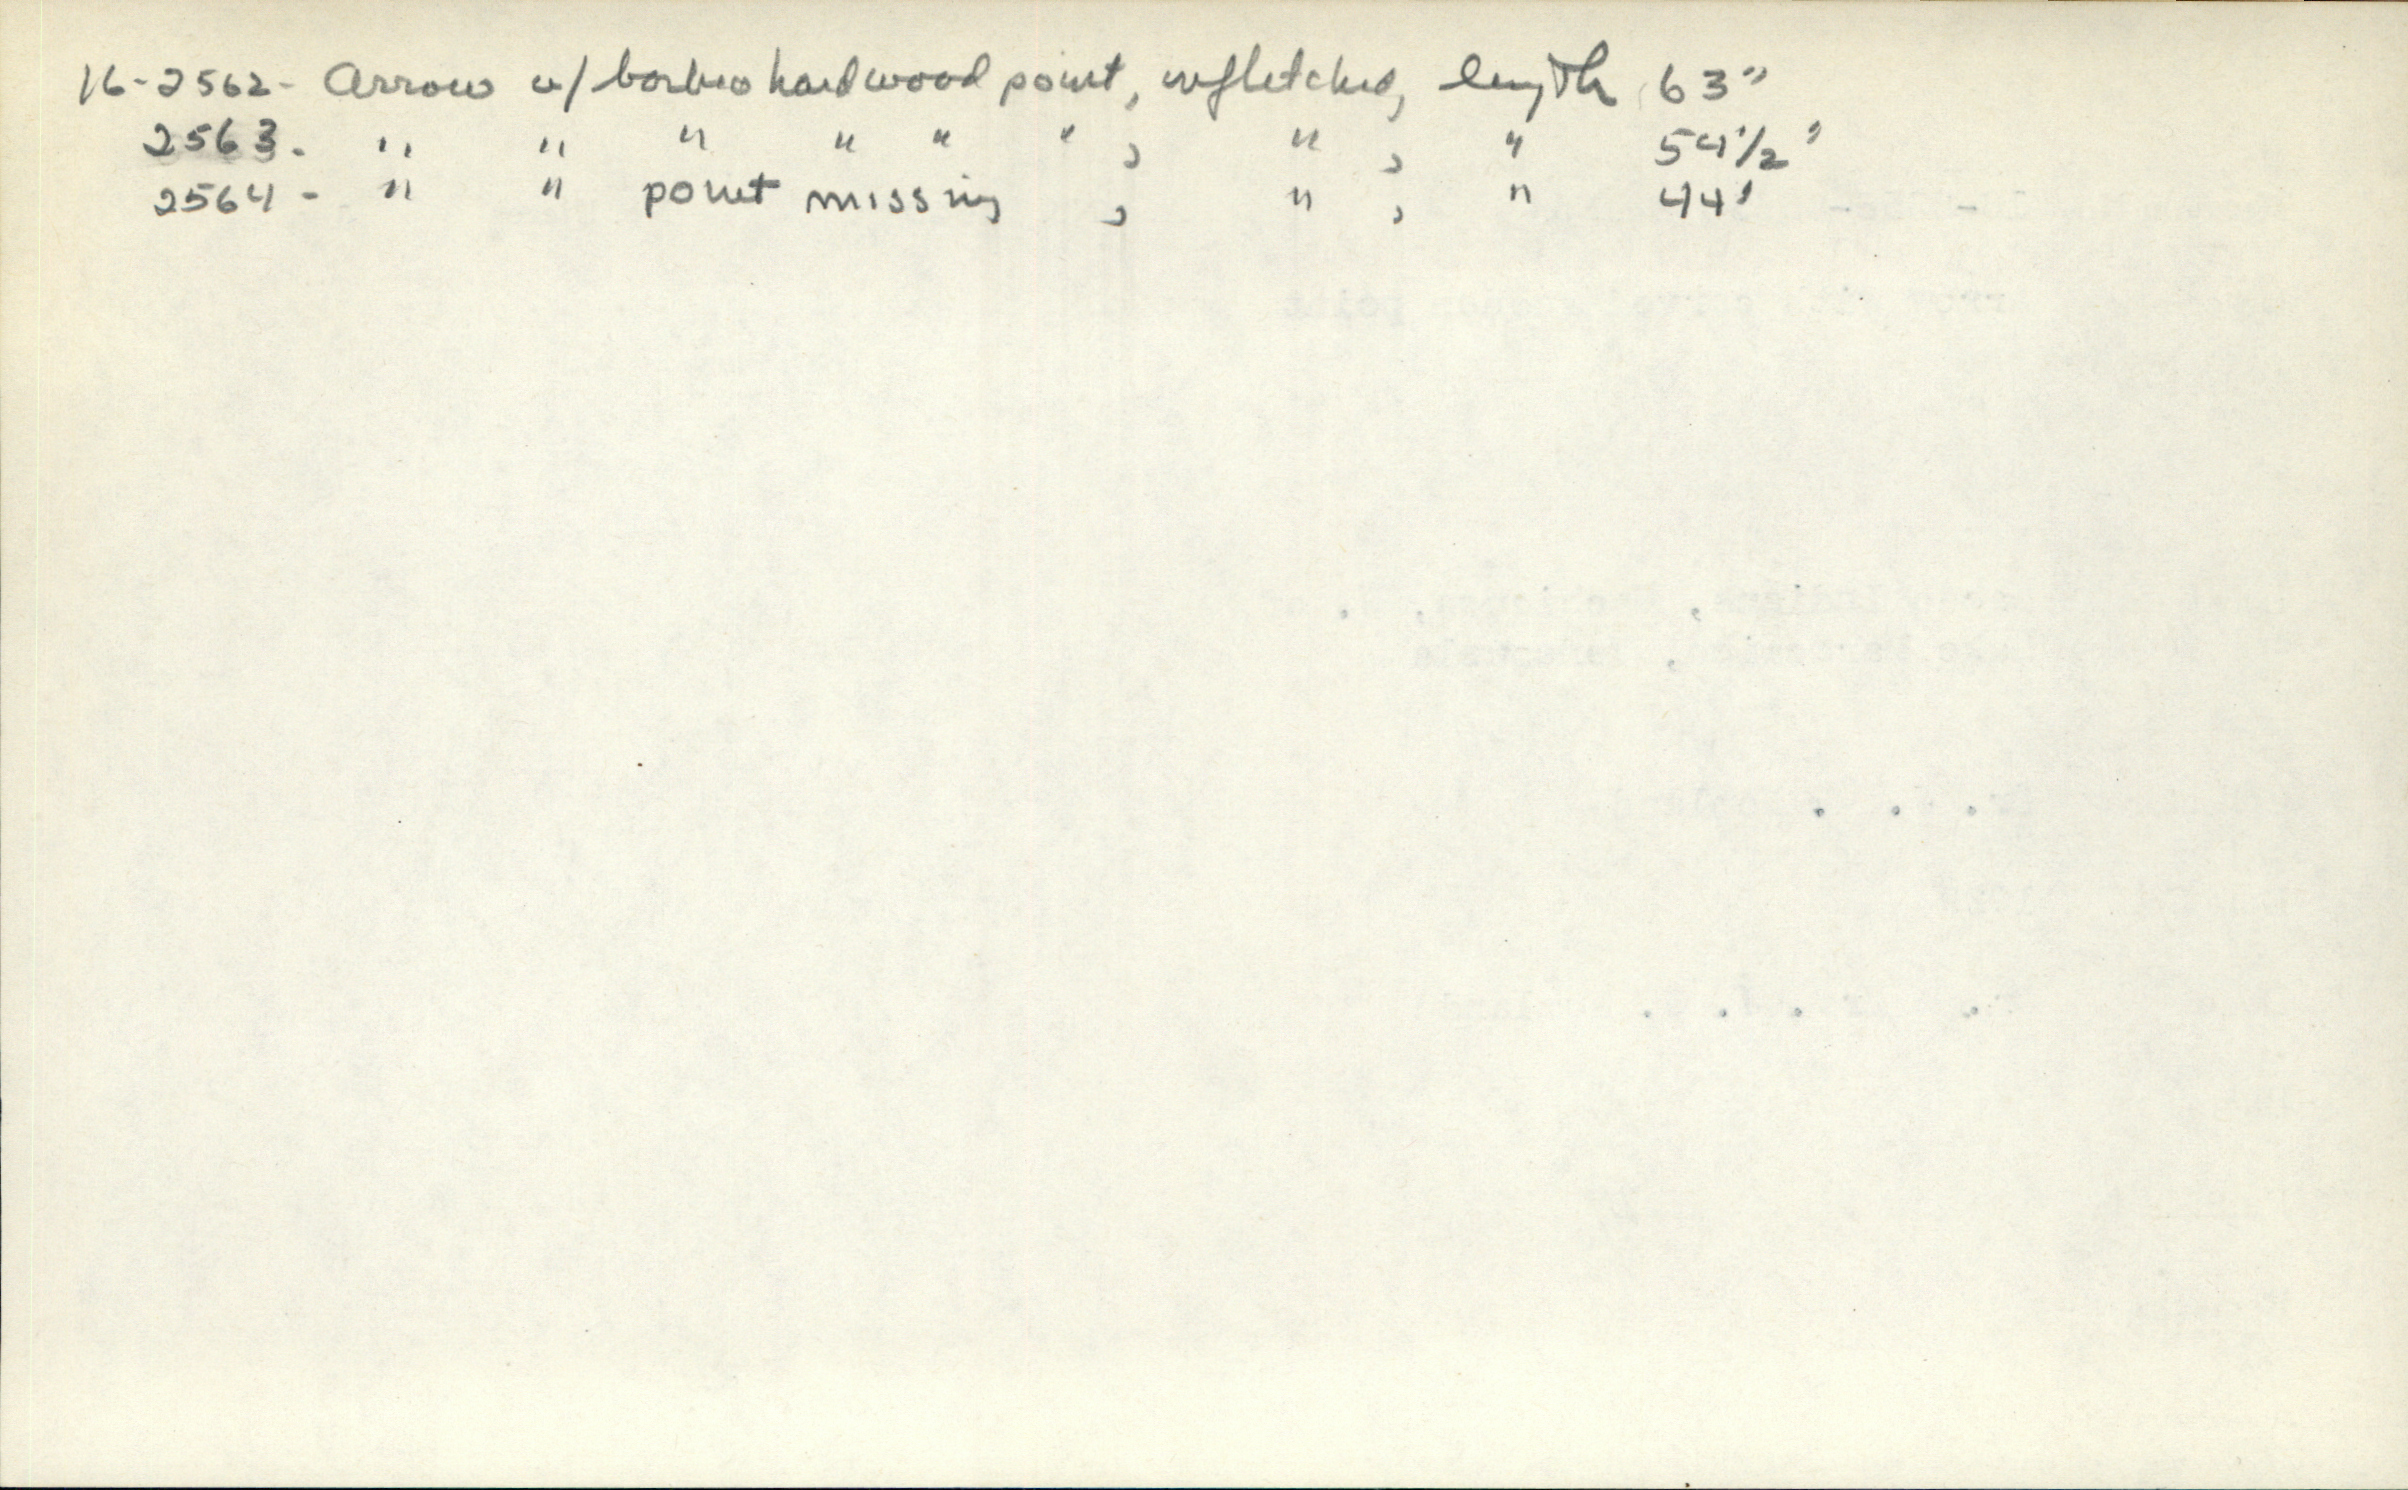 16-2562- Arrow w/ barbed hardwood point, unfletched, length 63"
2563- " " " " " " , " , " 54 1/2"
2564- " " point missing , " , " 44"